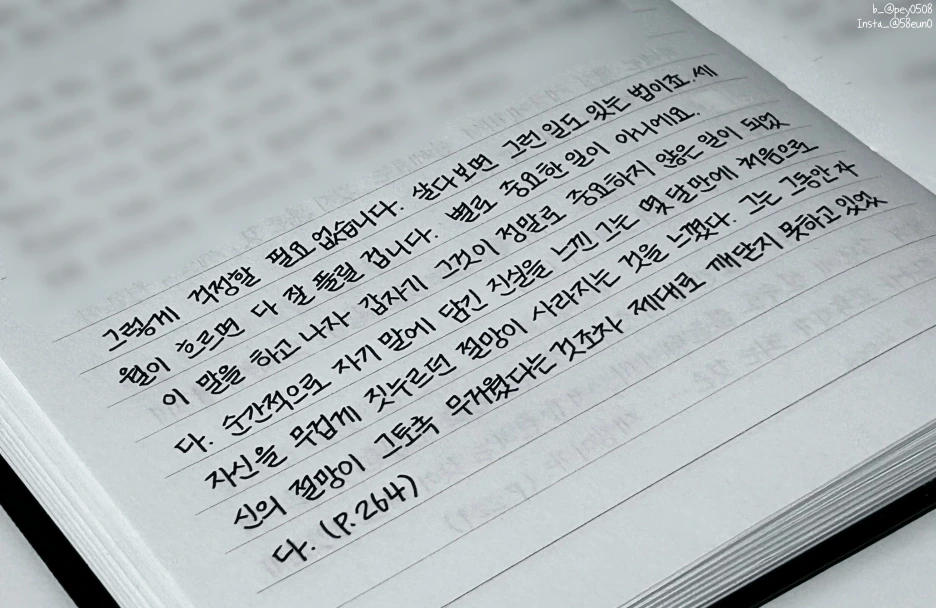 b_@pey0508
Insta_@58eun0
그렇게 걱정할 필요 없습니다. 살다보면 그런 일도 있는 법이죠. 세
월이 흐르면 다 잘 풀릴 겁니다. 별로 중요한 일이 아니에요.
이 말을 하고 나자 갑자기 그것이 정말로 중요하지 않은 일이 되었
다. 순간적으로 자기 말에 담긴 진실을 느낀 그는 몇 달만에 처음으로
자신을 무겁게 짓누르던 절망이 사라지는 것을 느꼈다. 그는 그동안 자
신의 절망이 그토록 무거웠다는 것조차 제대로 깨닫지 못하고 있었
다. (P.264)